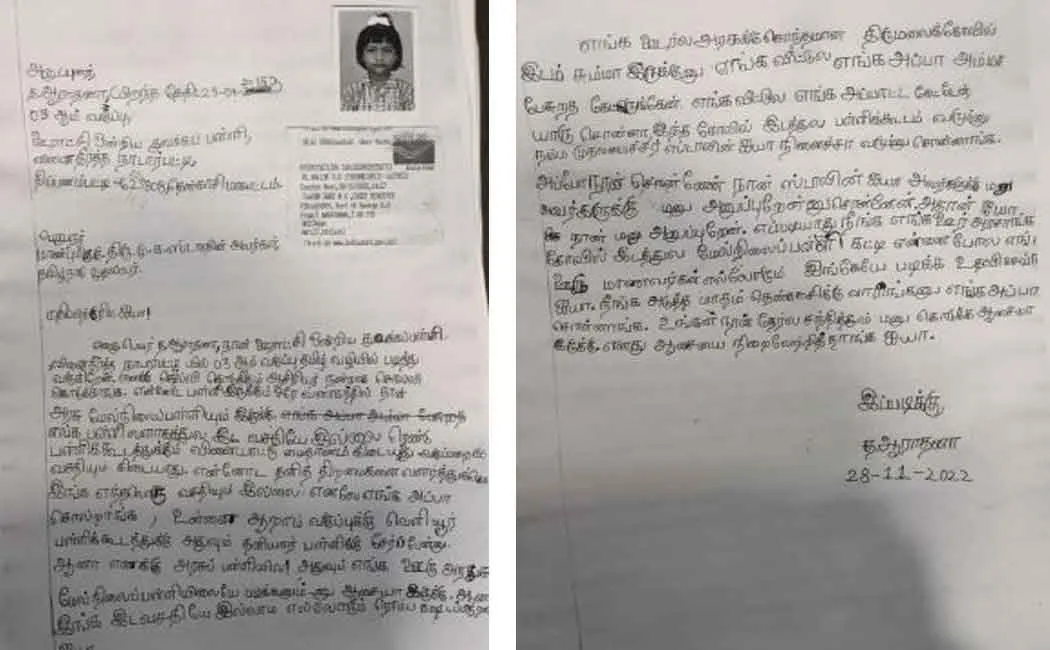 அனுப்புநர்
த.ஆராதனா,
03 ஆம் வகுப்பு
ஊராட்சி ஒன்றிய துவக்கப் பள்ளி,
வினைதீர்த்த நாடார்பட்டி,
தென்காசி மாவட்டம்.
பெறுநர்
மாண்புமிகு. திரு. மு.க.ஸ்டாலின் அவர்கள்,
தமிழக முதல்வர்.
மதிப்பிற்குரிய ஐயா!
எனது பெயர் த.ஆராதனா, நான் ஊராட்சி ஒன்றிய துவக்கப்பள்ளி
வினைதீர்த்த நாடார்பட்டி யில் 03 ஆம் வகுப்பு தமிழ் வழியில் படித்து
வருகிறேன். ஆசிரியர் நன்றாக சொல்லி
என்னோட பள்ளி இருக்கும் அதே வளாகத்தில் தான்
அரசு மேல்நிலைப்பள்ளியும் இருக்கு எங்க அப்பா அம்மா பேசுறத
எங்க பள்ளி வளாகத்துல இட வசதியே இல்லை ரெண்டு
பள்ளிக்கூடத்துக்கும் விளையாட்டு மைதானம் கிடையாது வகுப்பறை
வசதியும் கிடையாது. என்னோட தனித் திறமைகளை
இங்க எந்தவொரு வசதியும் இல்லை எனவே எங்க அப்பா
சொல்றாங்க, உன்னை ஆறாம் வகுப்புக்கு வெளியூர்
பள்ளிக்கூடத்துக்கு அதுவும் தனியார் பள்ளிக்கு சேர்ப்பேன்னு.
ஆனா எனக்கு அரசுப் பள்ளியில! அதுவும் எங்க ஊரு
மேல்நிலைப்பள்ளியிலையே படிக்கனும் ஆசையா இருக்கு.
இங்க இடவசதியே இல்லாம எல்லோரும் ரொம்ப
ஐயா
எங்க ஊர்ல அரசுக்கு சொந்தமான திருமலைக்கோவில்
இடம் சும்மா இருக்குனு எங்க வீட்டுல எங்க அப்பா அம்மா
பேசுறத கேட்டுருக்கேன். எங்க வீட்டுல எங்க அப்பாட்ட கேட்டேன்
யாரு சொன்னா இந்த கோவில் இடத்துல பள்ளிக்கூடம் வரும்னு
நம்ம முதலமைச்சர் ஸ்டாலின் ஐயா நினைச்சா வரும்னு சொன்னாங்க.
அப்போ நான் சொன்னேன் நான் ஸ்டாலின் ஐயா அவர்களுக்கு மனு
அவர்களுக்கு மனு அனுப்புறேன்னு சொன்னேன். அதான் ஐயா
நான் மனு அனுப்புறேன். எப்படியாது நீங்க எங்க ஊர் அரசாங்க
கோவில் இடத்துல மேல்நிலைப்பள்ளி கட்டி என்னை போல எங்க
ஊரு மாணவர்கள் எல்லோரும் இங்கேயே படிக்க
ஐயா. நீங்க அடுத்த மாதம் தென்காசிக்கு வாரீங்கனு எங்க அப்பா
சொன்னாங்க. உங்கள நான் நேர்ல சந்தித்து மனு கொடுக்க ஆசையா
இருக்கு. எனது ஆசையை நிறைவேத்தித் தாங்க ஐயா.
இப்படிக்கு
த.ஆராதனா
28-11-2022